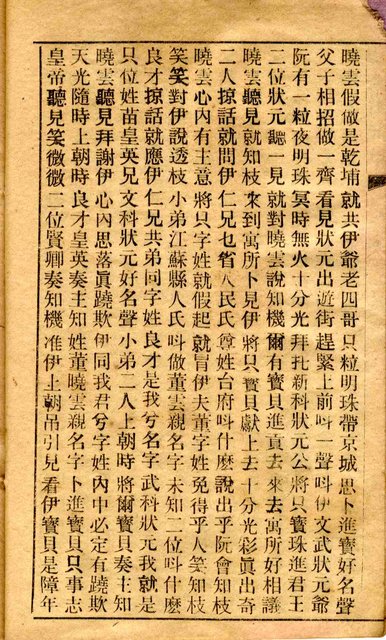 曉雲假做是乾埔就共伊爺老四哥只粒明珠帶京城思卜進寶好名聲
父子相招做一齊看見狀元出遊街趕緊上前呌一聲呌伊文武狀元爺
阮有一粒夜明珠冥時無火十分光拜托新科狀元公將只寶珠進君王
二位狀元聽一見就對曉雲說知機爾有寶貝進真去來去寓所好相議
曉雲聽見就知枝來到寓所卜見伊將只寶貝獻上去十分光彩真出奇
二人掠話就問伊仁兄乜省人民氏尊姓台府呌什麼說出乎阮會知枝
曉雲心內有主意將只字姓就假起就冒伊夫董字姓免得乎人笑知枝
笑笑對伊說透枝小弟江蘇縣人氏呌做董雲親名字未知二位呌什麼
良才掠話就應伊仁兄共弟同字姓良才是我兮名字武科狀元我就是
只位姓苗皇英兄文科狀元好名聲小弟二人上朝時將爾寶貝奏主知
曉雲聽見拜謝伊心內思落真蹺欺伊同我君兮字姓內中必定有蹺欺
天光隨時上朝時良才皇英奏主知姓董曉雲親名字卜進寶貝只事志
皇帝聽見笑微微二位賢卿奏知機准伊上朝吊引見看伊寶貝是障年